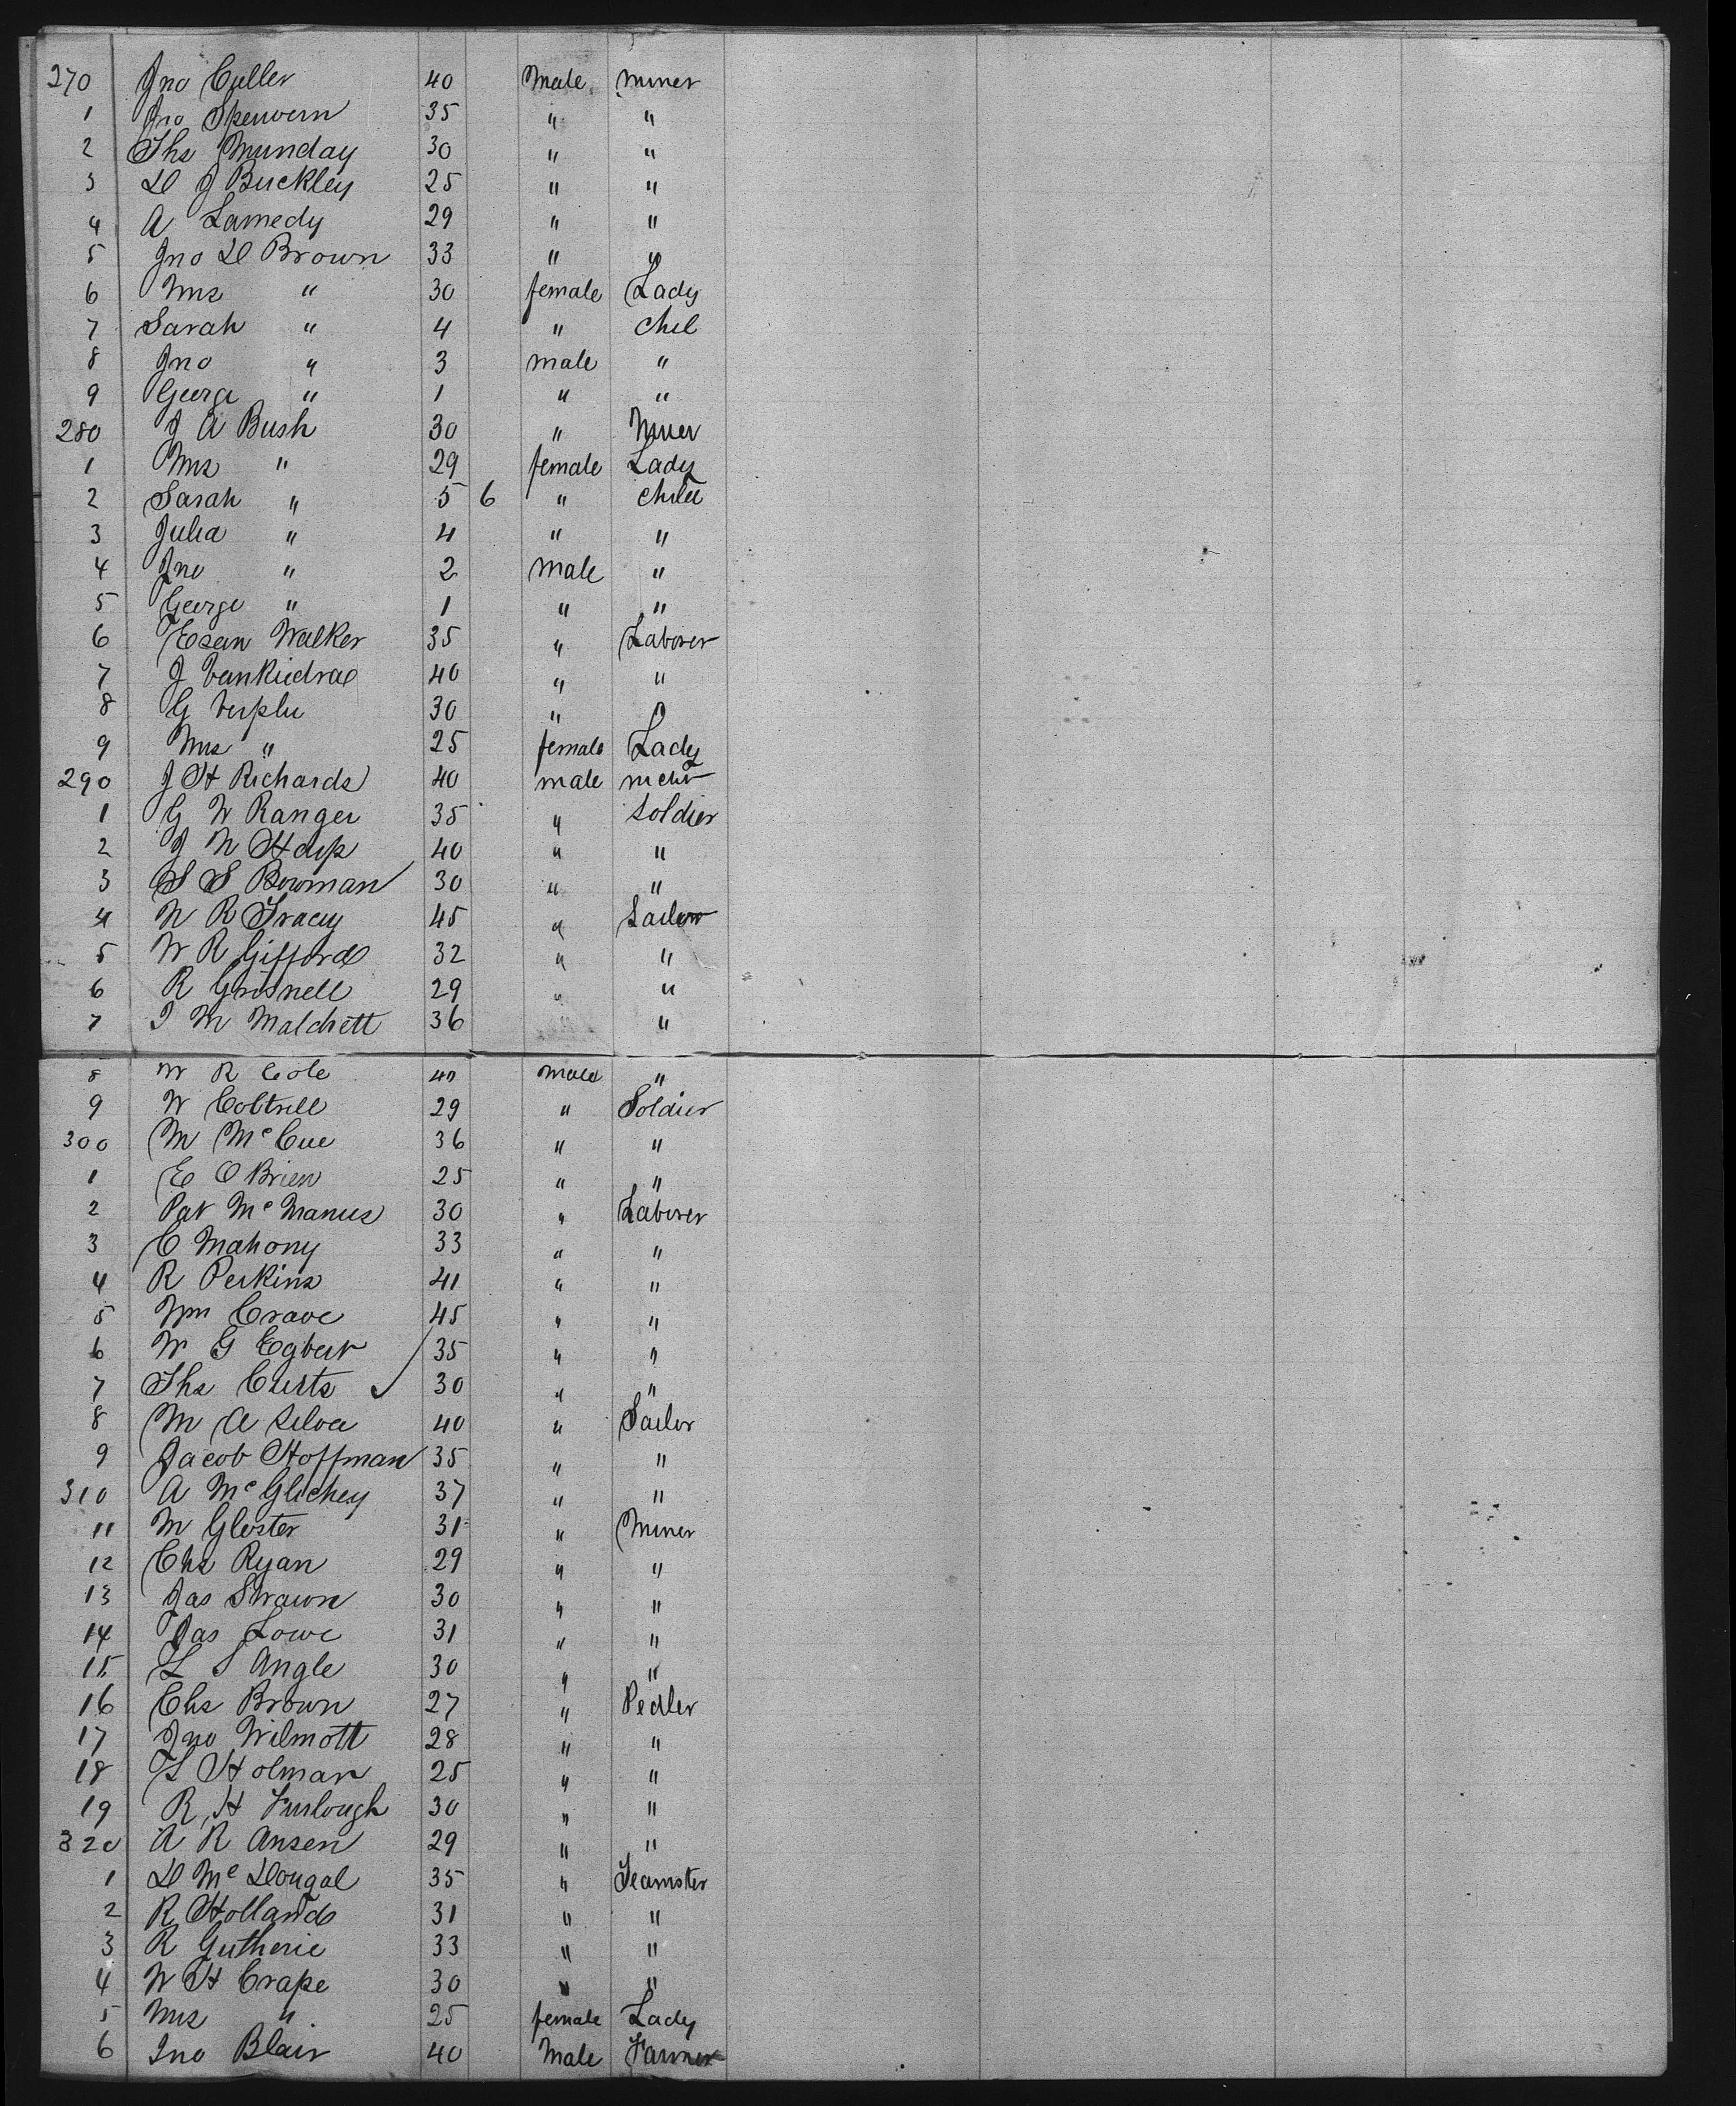 270 Jno Culler 40 Male Miner
1 Jno 35 " "
2 Ths Munday 30 " "
3 D J Buckley 25 " "
4 A Lamedy 29 " "
5 Jno D Brown 33 " "
6 Mrs " 30 female Lady
7 Sarah " 4 " chil
8 Jno " 3 male "
9 George " 1 " "
280 J A Bush 30 " Miner
1 Mrs " 29 female Lady
2 Sarah " 5 6 " child
3 Julia " 4 " "
4 Jno " 2 male "
5 George " 1 " "
6 Walker 35 " Laborer
7 J 40 " "
8 G 30 " "
9 Mrs " 25 female Lady
290 J H Richards 40 male
1 G W Ranger 35 " Soldier
2 J N 40 " "
3 S S Bowman 30 " "
4 N R Tracey 45 " Sailor
5 W R Gifford 32 " "
6 R Grisnell 29 " "
7 J M Malchett 36 " "
8 W R Cole 40 male "
9 W Coltrell 29 " Soldier
300 M McCue 36 " "
1 E O Brien 25 " "
2 Pat McManus 30 " Laborer
3 C Mahony 33 " "
4 R Perkins 41 " "
5 Wm Crave 45 " "
6 W G Egbert 35 " "
7 Ths Curts 30 " "
8 M A Silva 40 " Sailor
9 Jacob Hoffman 35 " "
310 A McGlichey 37 " "
11 M Gloster 31 " Miner
12 Chs Ryan 29 " "
13 Jas Strawn 30 " "
14 Jas Lowe 31 " "
15 L S Angle 30 " "
16 Chs Brown 27 " Pedler
17 Jno Wilmott 28 " "
18 L Holman 25 " "
19 R H Furlough 30 " "
320 A R Ansen 29 " "
1 D McDougal 35 " Teamster
2 R Holland 31 " "
3 R Gutherie 33 " "
4 W H Crape 30 " "
5 Mrs " 25 female Lady
6 Jno Blair 40 Male Farmer